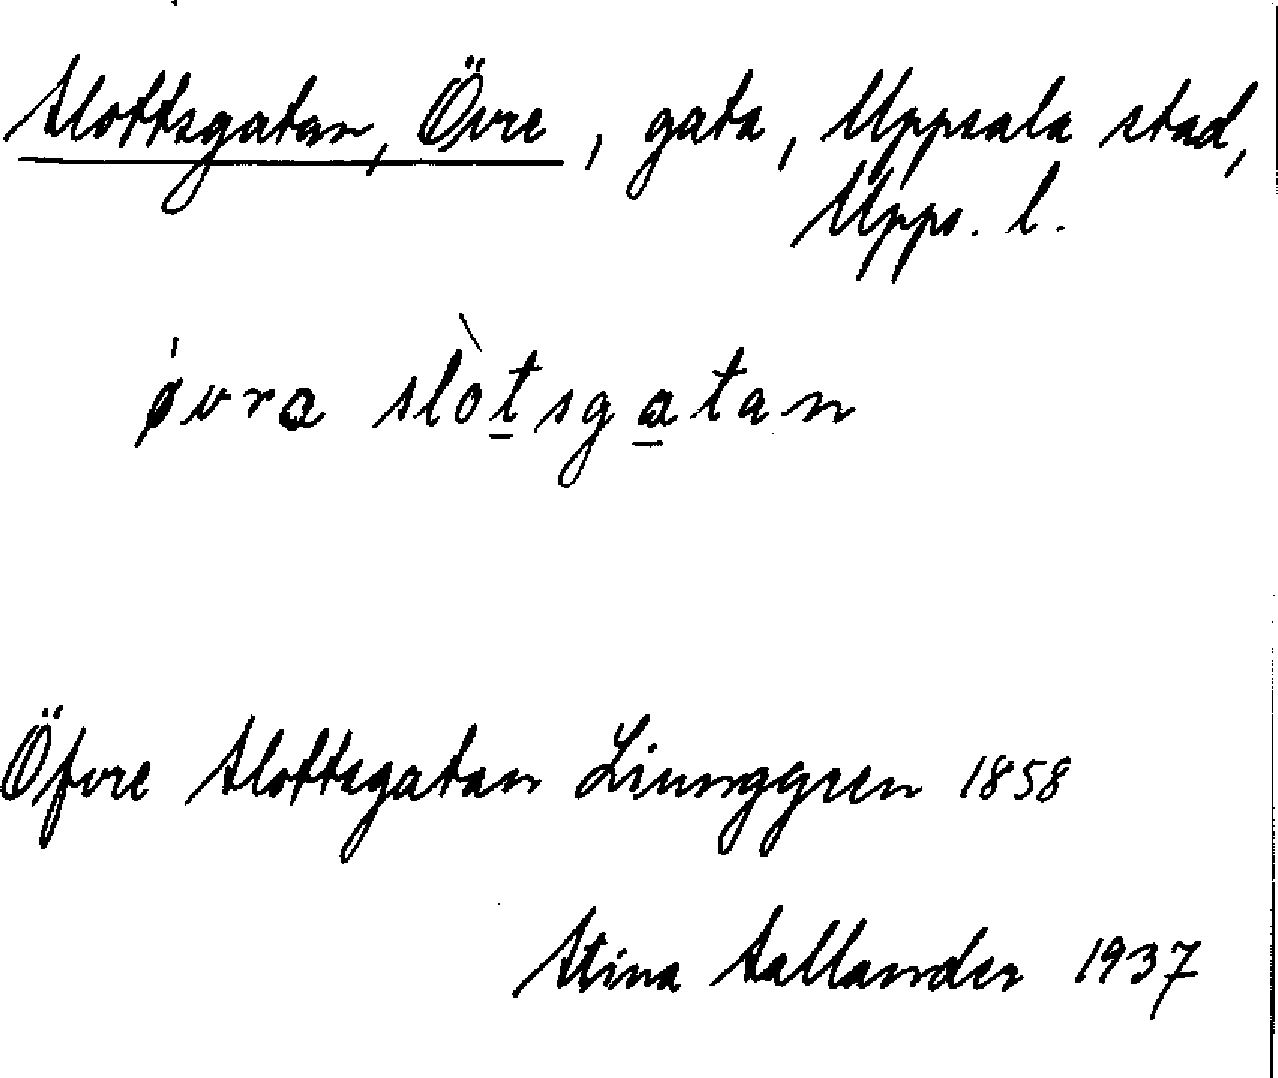 Slottsgatan, Övre, gata, Uppsala stad,
Upps. l.
ǿvra slòtsgatan
Öfvre Slottsgatan Liunggren 1858
Stina Sallander 1937